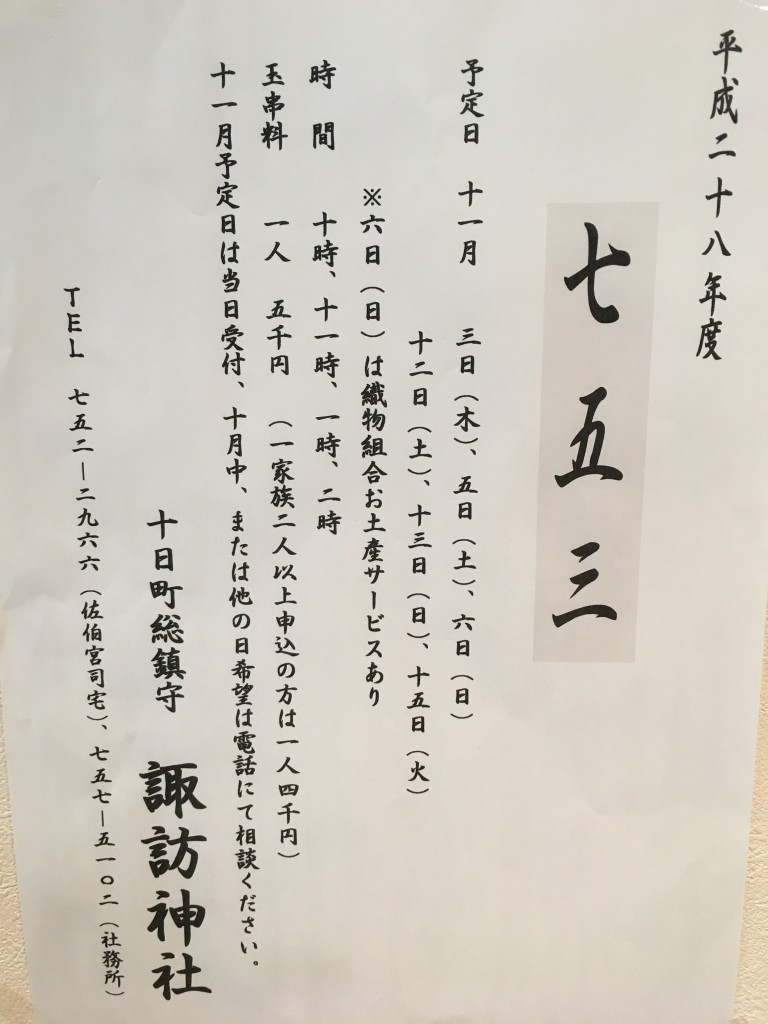 平成二十八年度
七五三
予定日　十一月　三日（木）、五日（土）、六日（日）
十二日（土）、十三日（日）、十五日（火）
※六日（日）は織物組合お土産サービスあり
時　間　十時、十一時、一時、二時
玉串料　一人　五千円　（一家族二人以上申込の方は一人四千円）
十一月予定日は当日受付、十月中、または他の日希望は電話にて相談ください。
十日町総鎮守　諏訪神社
ＴＥＬ　七五二－二九六六（佐伯宮司宅）、七五七－五一〇二（社務所）